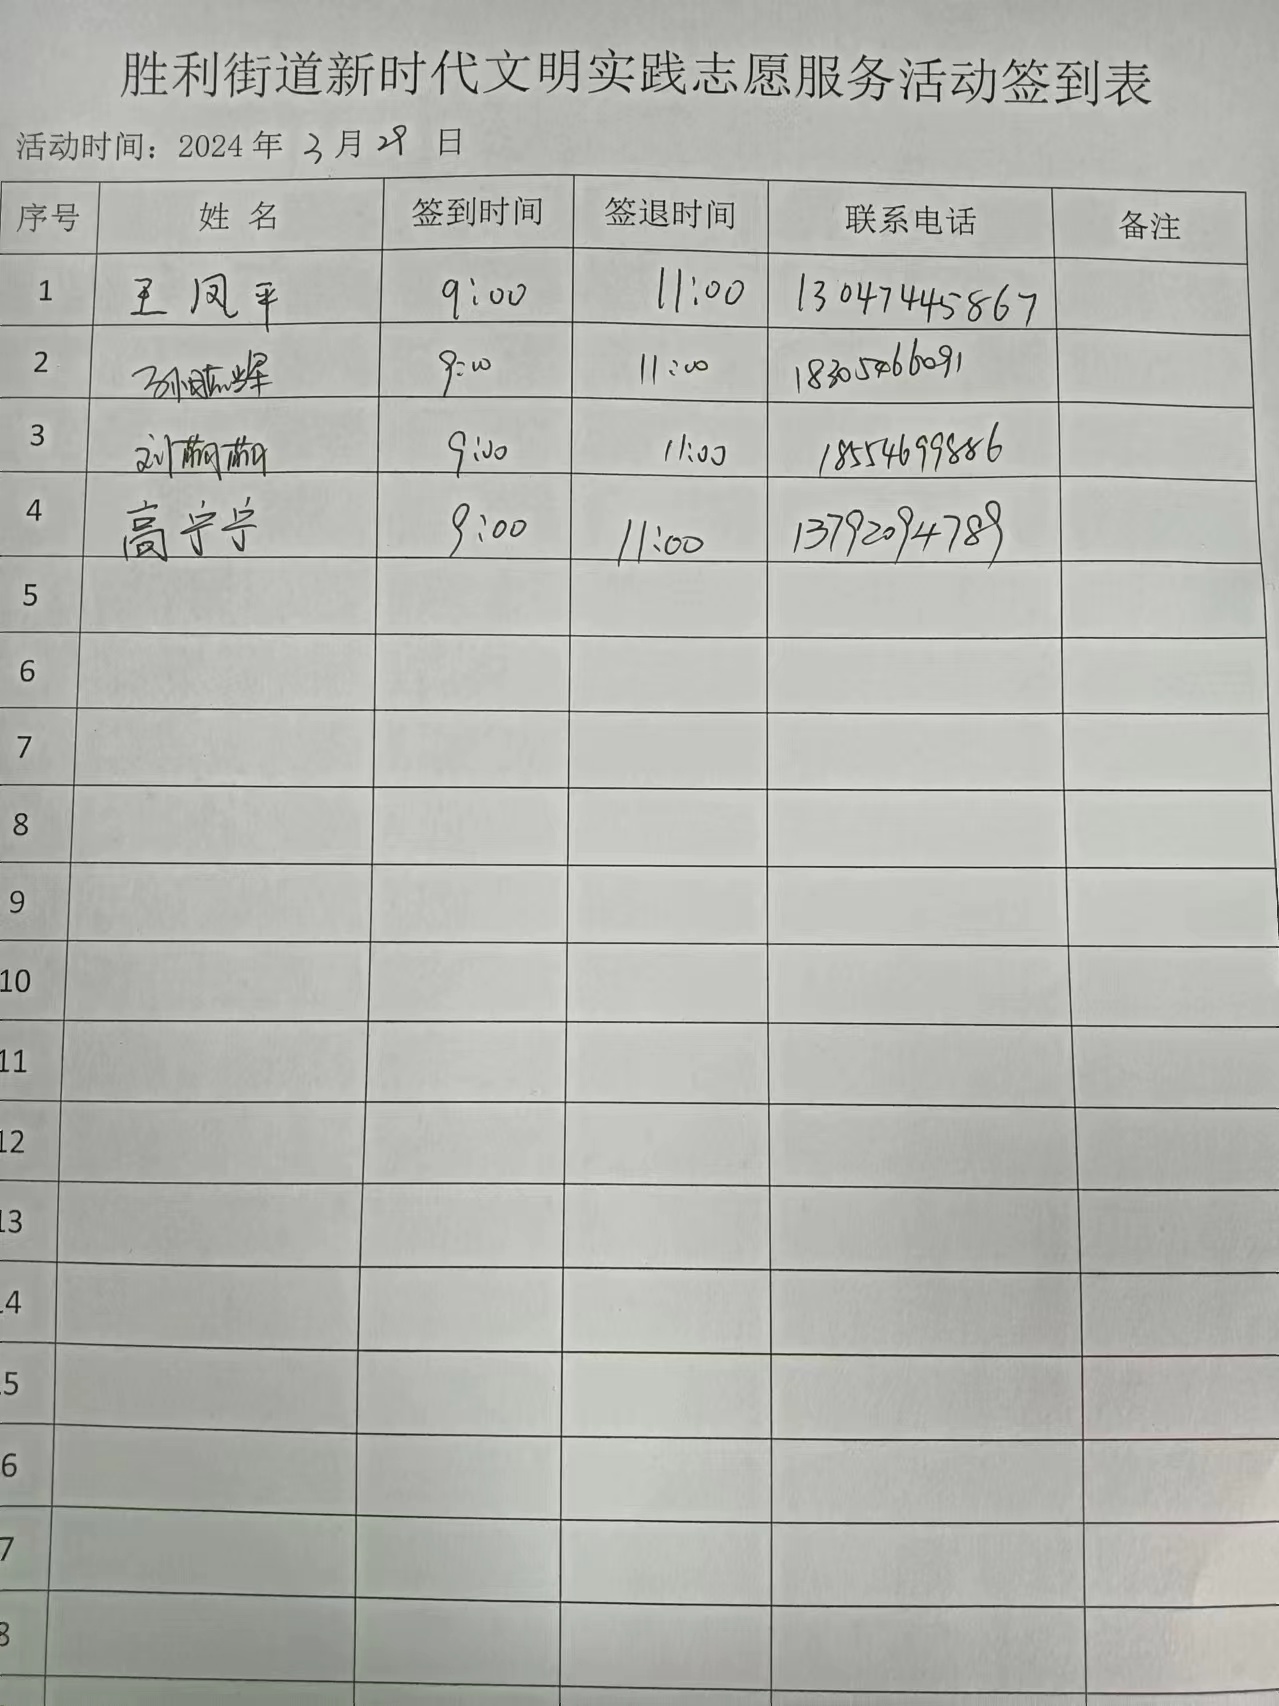 胜利街道新时代文明实践志愿服务活动签到表
活动时间：2024 年 3 月 29 日
序号 姓 名 签到时间 签退时间 联系电话 备注
1 王凤平 9:00 11:00 13047445867
2 9:00 11:00 18305466091
3 刘萌萌 9:00 11:00 18554699886
4 高宁宁 9:00 11:00 13792094789
5
6
7
8
9
10
11
12
13
14
15
16
17
18